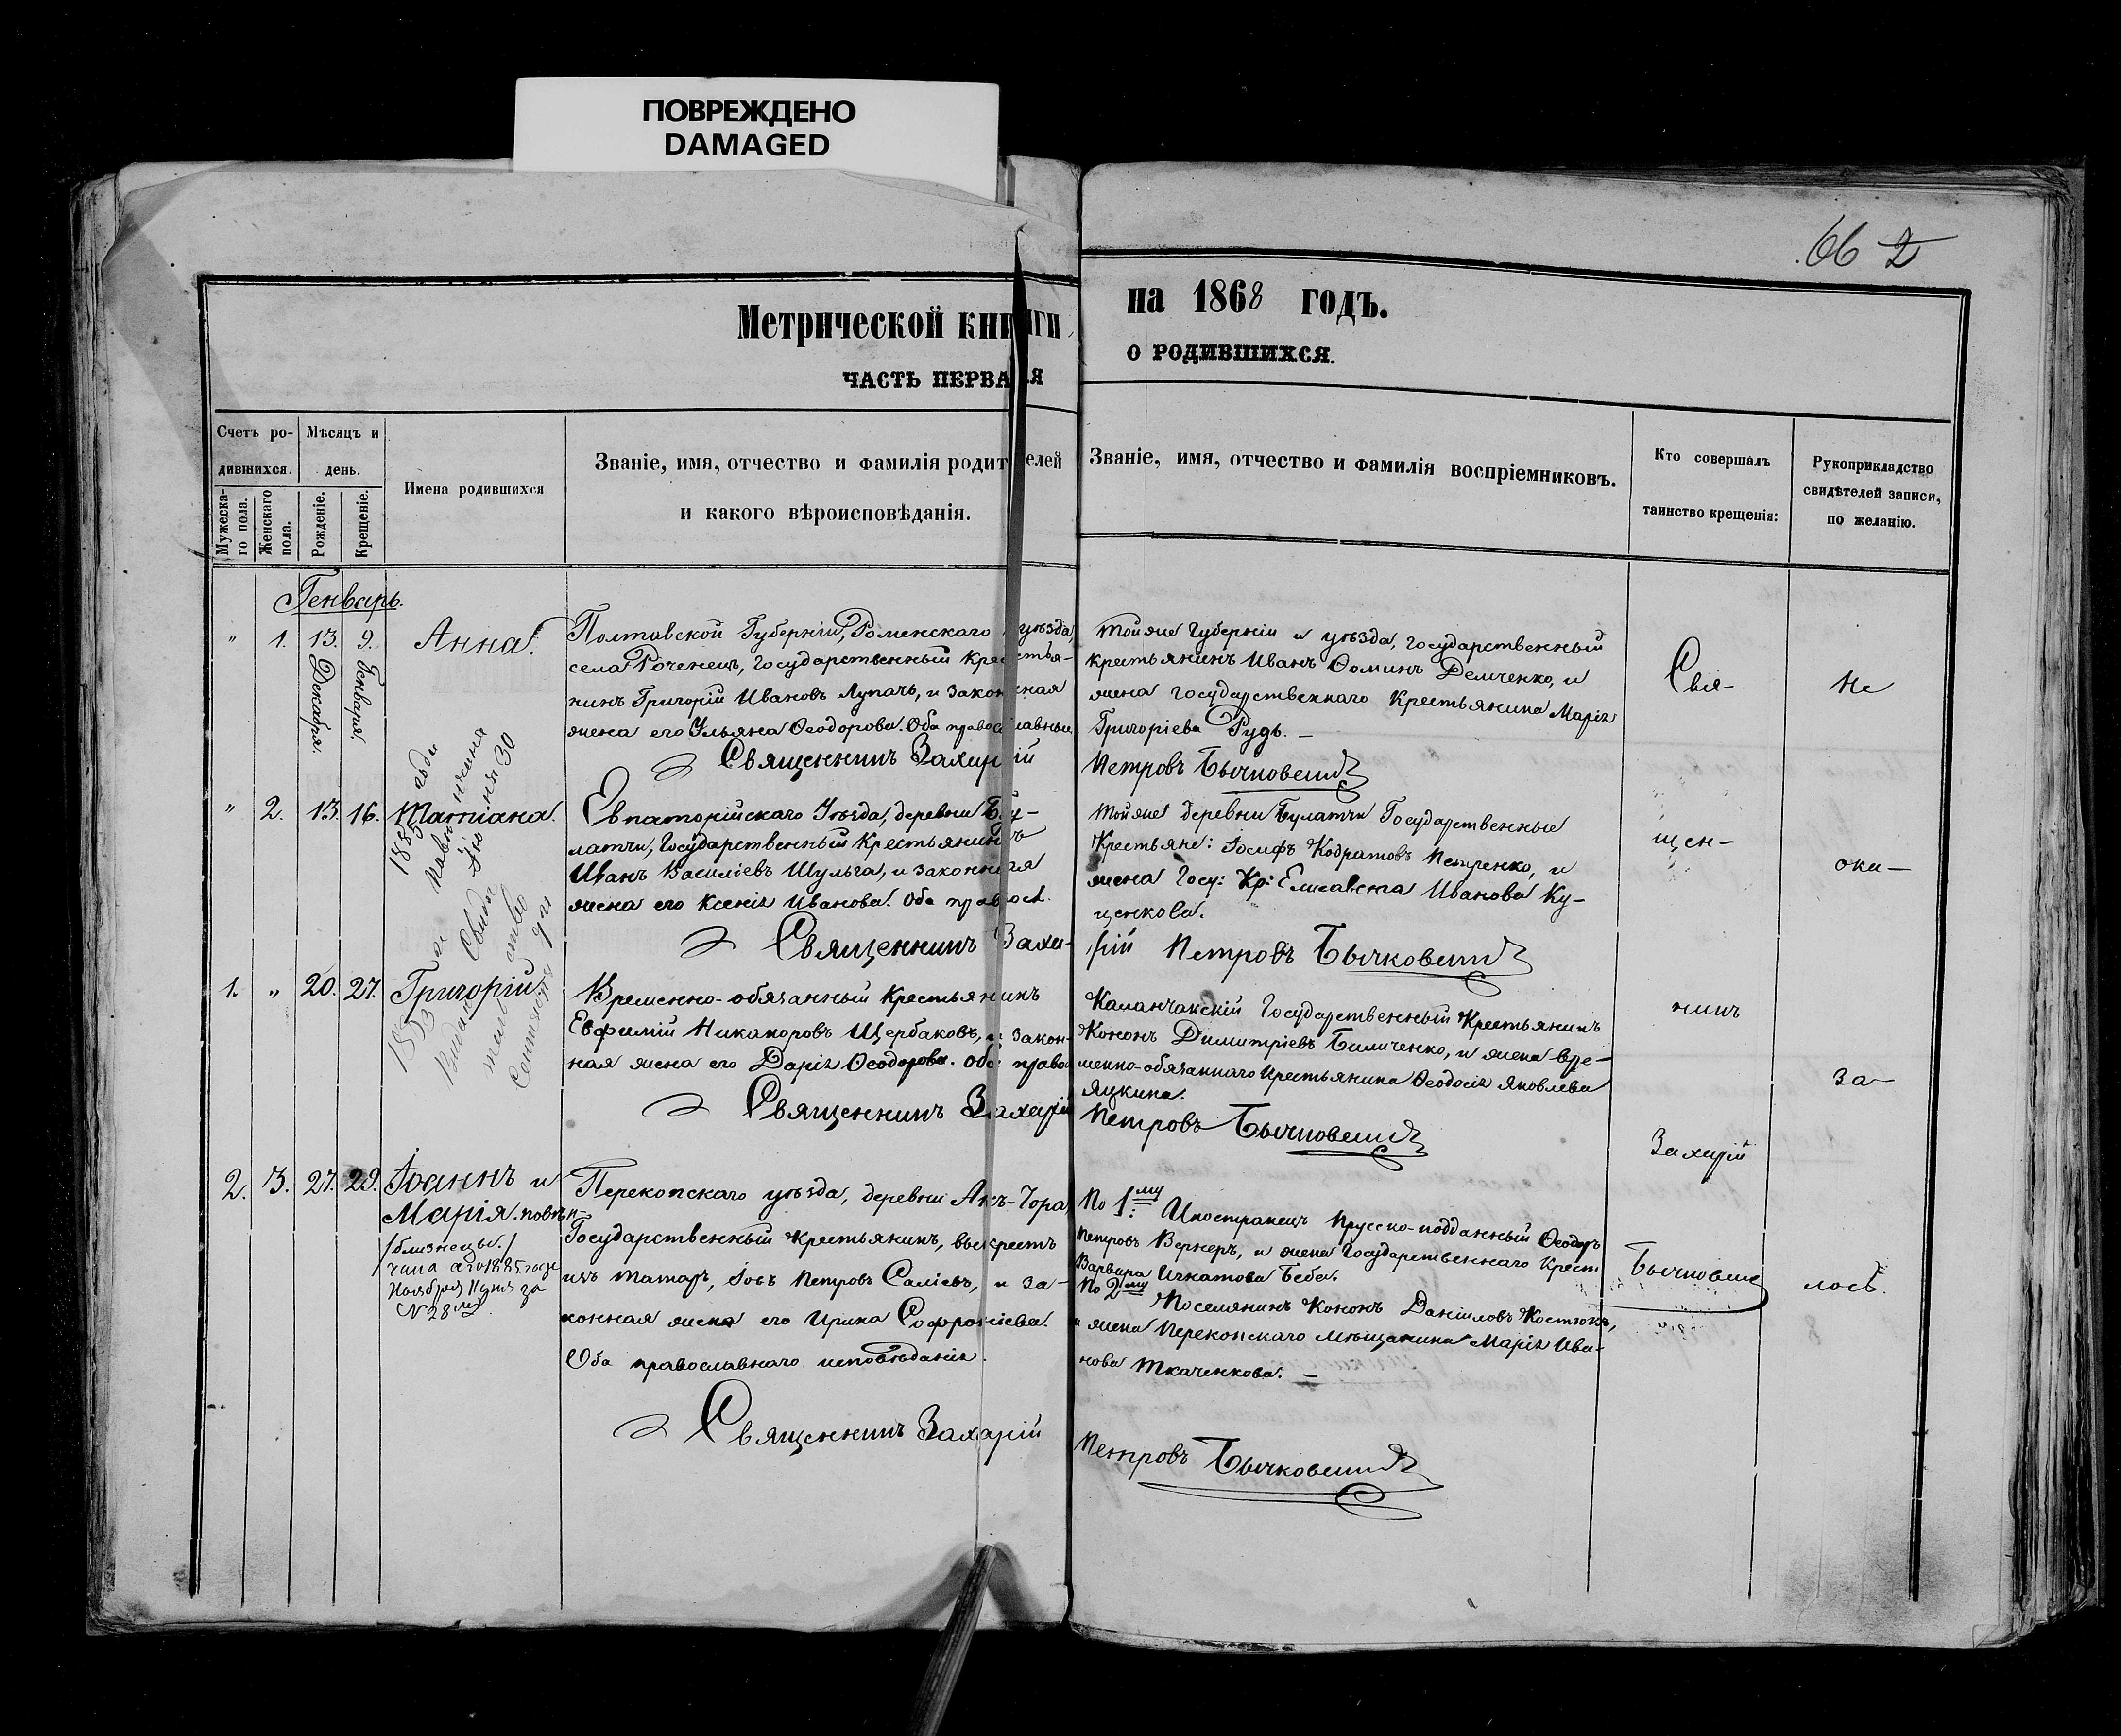 ПОВРЕЖДЕНО
DAMAGED
66 2
Метрической книги на 1868 годъ.
ЧАСТЬ ПЕРВАЯ О РОДИВШИХСЯ.
Счетъ ро-
дившихся.
Мужеска-
го пола.
Женскаго
пола.
Мѣсяцъ и
день.
Рожденіе.
Крещеніе.
Имена родившихся
Званіе, имя, отчество и фамилія родителей
и какого вѣроисповѣданія.
Званіе, имя, отчество и фамилія воспріемниковъ.
Кто совершалъ
таинство крещенія:
Рукоприкладство
свидѣтелей записи,
по желанію.
Генварь.
" 1. 13. 9. Анна.
Декабря. Генваря.
Полтавской Губерніи, Роменскаго уѣзда,
села Роченец, Государственный Крестья-
нинъ Григорій Ивановъ Лупачъ, и законная
жена его Ульяна Ѳеодорова. Оба православные
Священникъ Захарій
тойже Губерніи и уѣзда, Государственный
крестьянинъ Иванъ Ѳоминъ Демченко, и
жена Государственнаго Крестьянина Марія
Григоріева Рудь. —
Петровъ Бычковскій
" 2. 13. 16. Татіана.
Евпаторійскаго Уѣзда, деревни Бу-
латчи, Государственный Крестьянинъ
Иванъ Василіевъ Шульга, и законная
жена его Ксенія Иванова. Оба правос.
Священникъ Заха-
тойже деревни Булатчи Государственные
Крестьяне: Іосифъ Кодратовъ Петренко, и
жена Госу: Кр: Елисавета Иванова Ку-
ценкова.
рій Петровъ Бычковскій
1. " 20. 27. Григорій
Временно-обязанный Крестьянинъ
Евфимій Никаноровъ Щербаковъ, и закон-
ная жена его Дарія Ѳеодорова. Оба право
Священникъ Захарій
Каланчакскій Государственный Крестьянинъ
Кононъ Димитріевъ Биличенко, и жена вре-
менно-обязаннаго крестьянина Ѳеодосія Яковлева
Яцкина.
Петровъ Бычковскій
2. 3. 27. 29. Іоаннъ и
Марія.
/близнецы./
1885 года
Ноября 11 дня за
N 28
Перекопскаго уѣзда, деревни Акъ-Чора,
Государственный Крестьянинъ, выкрестъ
изъ татаръ, Іовъ Петровъ Саліевъ, и за-
конная жена его Ирина Софроніева.
Оба православнаго исповѣданія.
Священникъ Захарій
По 1му: Иностранецъ Прусско-подданный Ѳеодоръ
Петровъ Вернеръ, и жена Государственнаго Крест
Варвара Игнатова Беба.
По 2му Поселянинъ Кононъ Даніиловъ Костюкъ,
и жена Перекопскаго мѣщанина Марія Ива-
нова Ткаченкова. —
Петровъ Бычковскій
Свя-
щен-
никъ
Захарій
Бычковскій
Не
ока-
за-
лось.